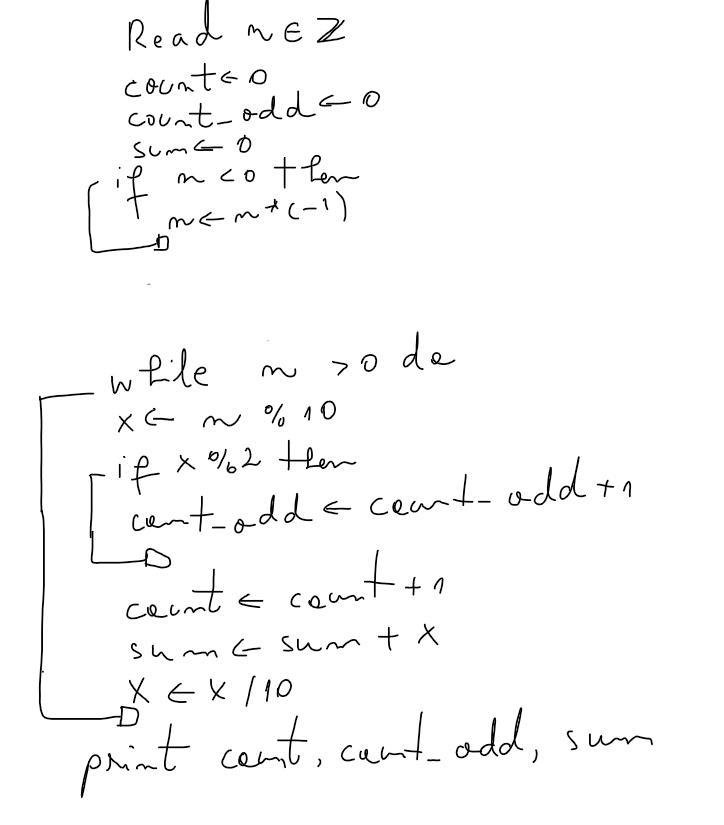 Read n ∈ Z
count ← 0
count_odd ← 0
sum ← 0
if n < 0 then
n ← n * (-1)
while n > 0 do
x ← n % 10
if x % 2 then
count_odd ← count_odd + 1
count ← count + 1
sum ← sum + x
x ← x / 10
print count, count_odd, sum